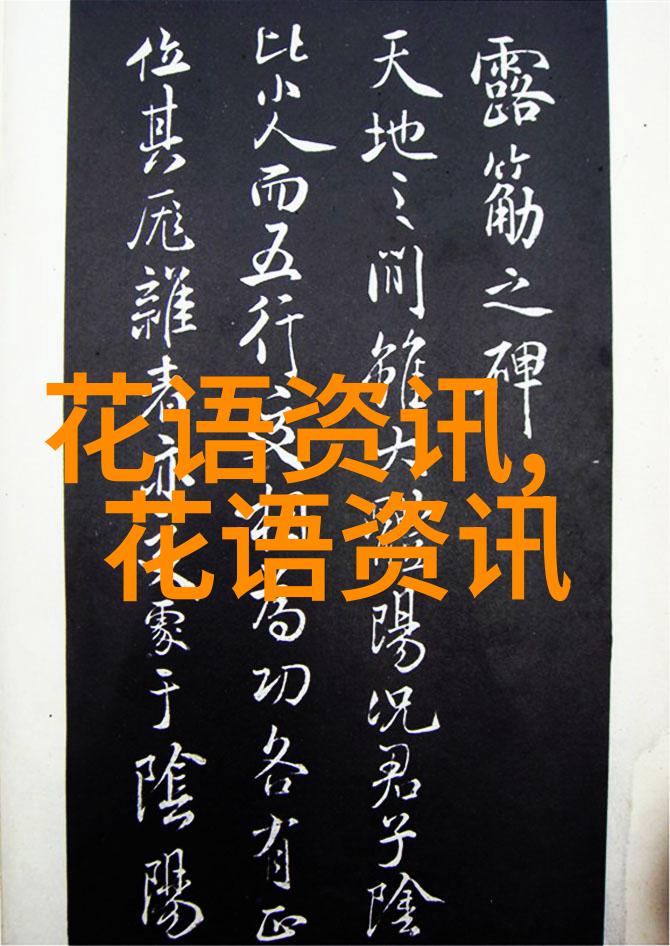 露筋之碑
天地之間雖大陽況君子陰
比小人而五行交為功各有正
位其厖雜者亦于陰陽
花语资讯,
花语资讯